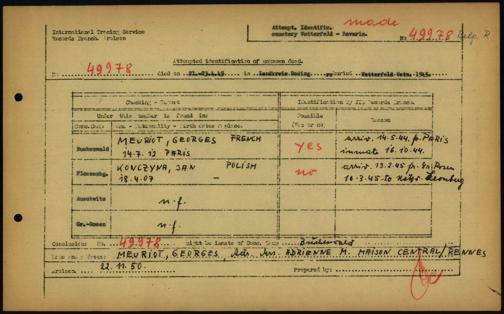 International Tracing Service
Records Branch. Arolsen
Attempt. Identific. made
cemetery Wetterfeld - Bavaria.
No 49978
Attempted identification of unknown dead.
No. 49978 died on 21.-23.4.45 in Landkreis Roding buried Wetterfeld Cem. 1945.
Checking - Report
Identification by ITS, Records Branch.
Under this number is found in:
Possible (Yes or no)
Reason
Conc.Camp Name - Nationality - Birth dates & place.
Buchenwald MEURIOT, GEORGES FRENCH yes arriv. 14.5.44 fr. PARIS
14.7.13 PARIS inmate 16.10.44.
Flossenbg. KONCZYNA, JAN POLISH no arriv. 13.2.45 fr. Gr. Rosen
18.4.07 - 16.3.45 to Natzw. Leonberg
Auschwitz n.f.
Gr.-Rosen n.f.
Conclusion: No. 49978 might be inmate of Conc. Camp Buchenwald
MEURIOT, GEORGES, ADRIENNE M. MAISON CENTRAL/RENNES
Arolsen, 22.11.50. Prepared by: